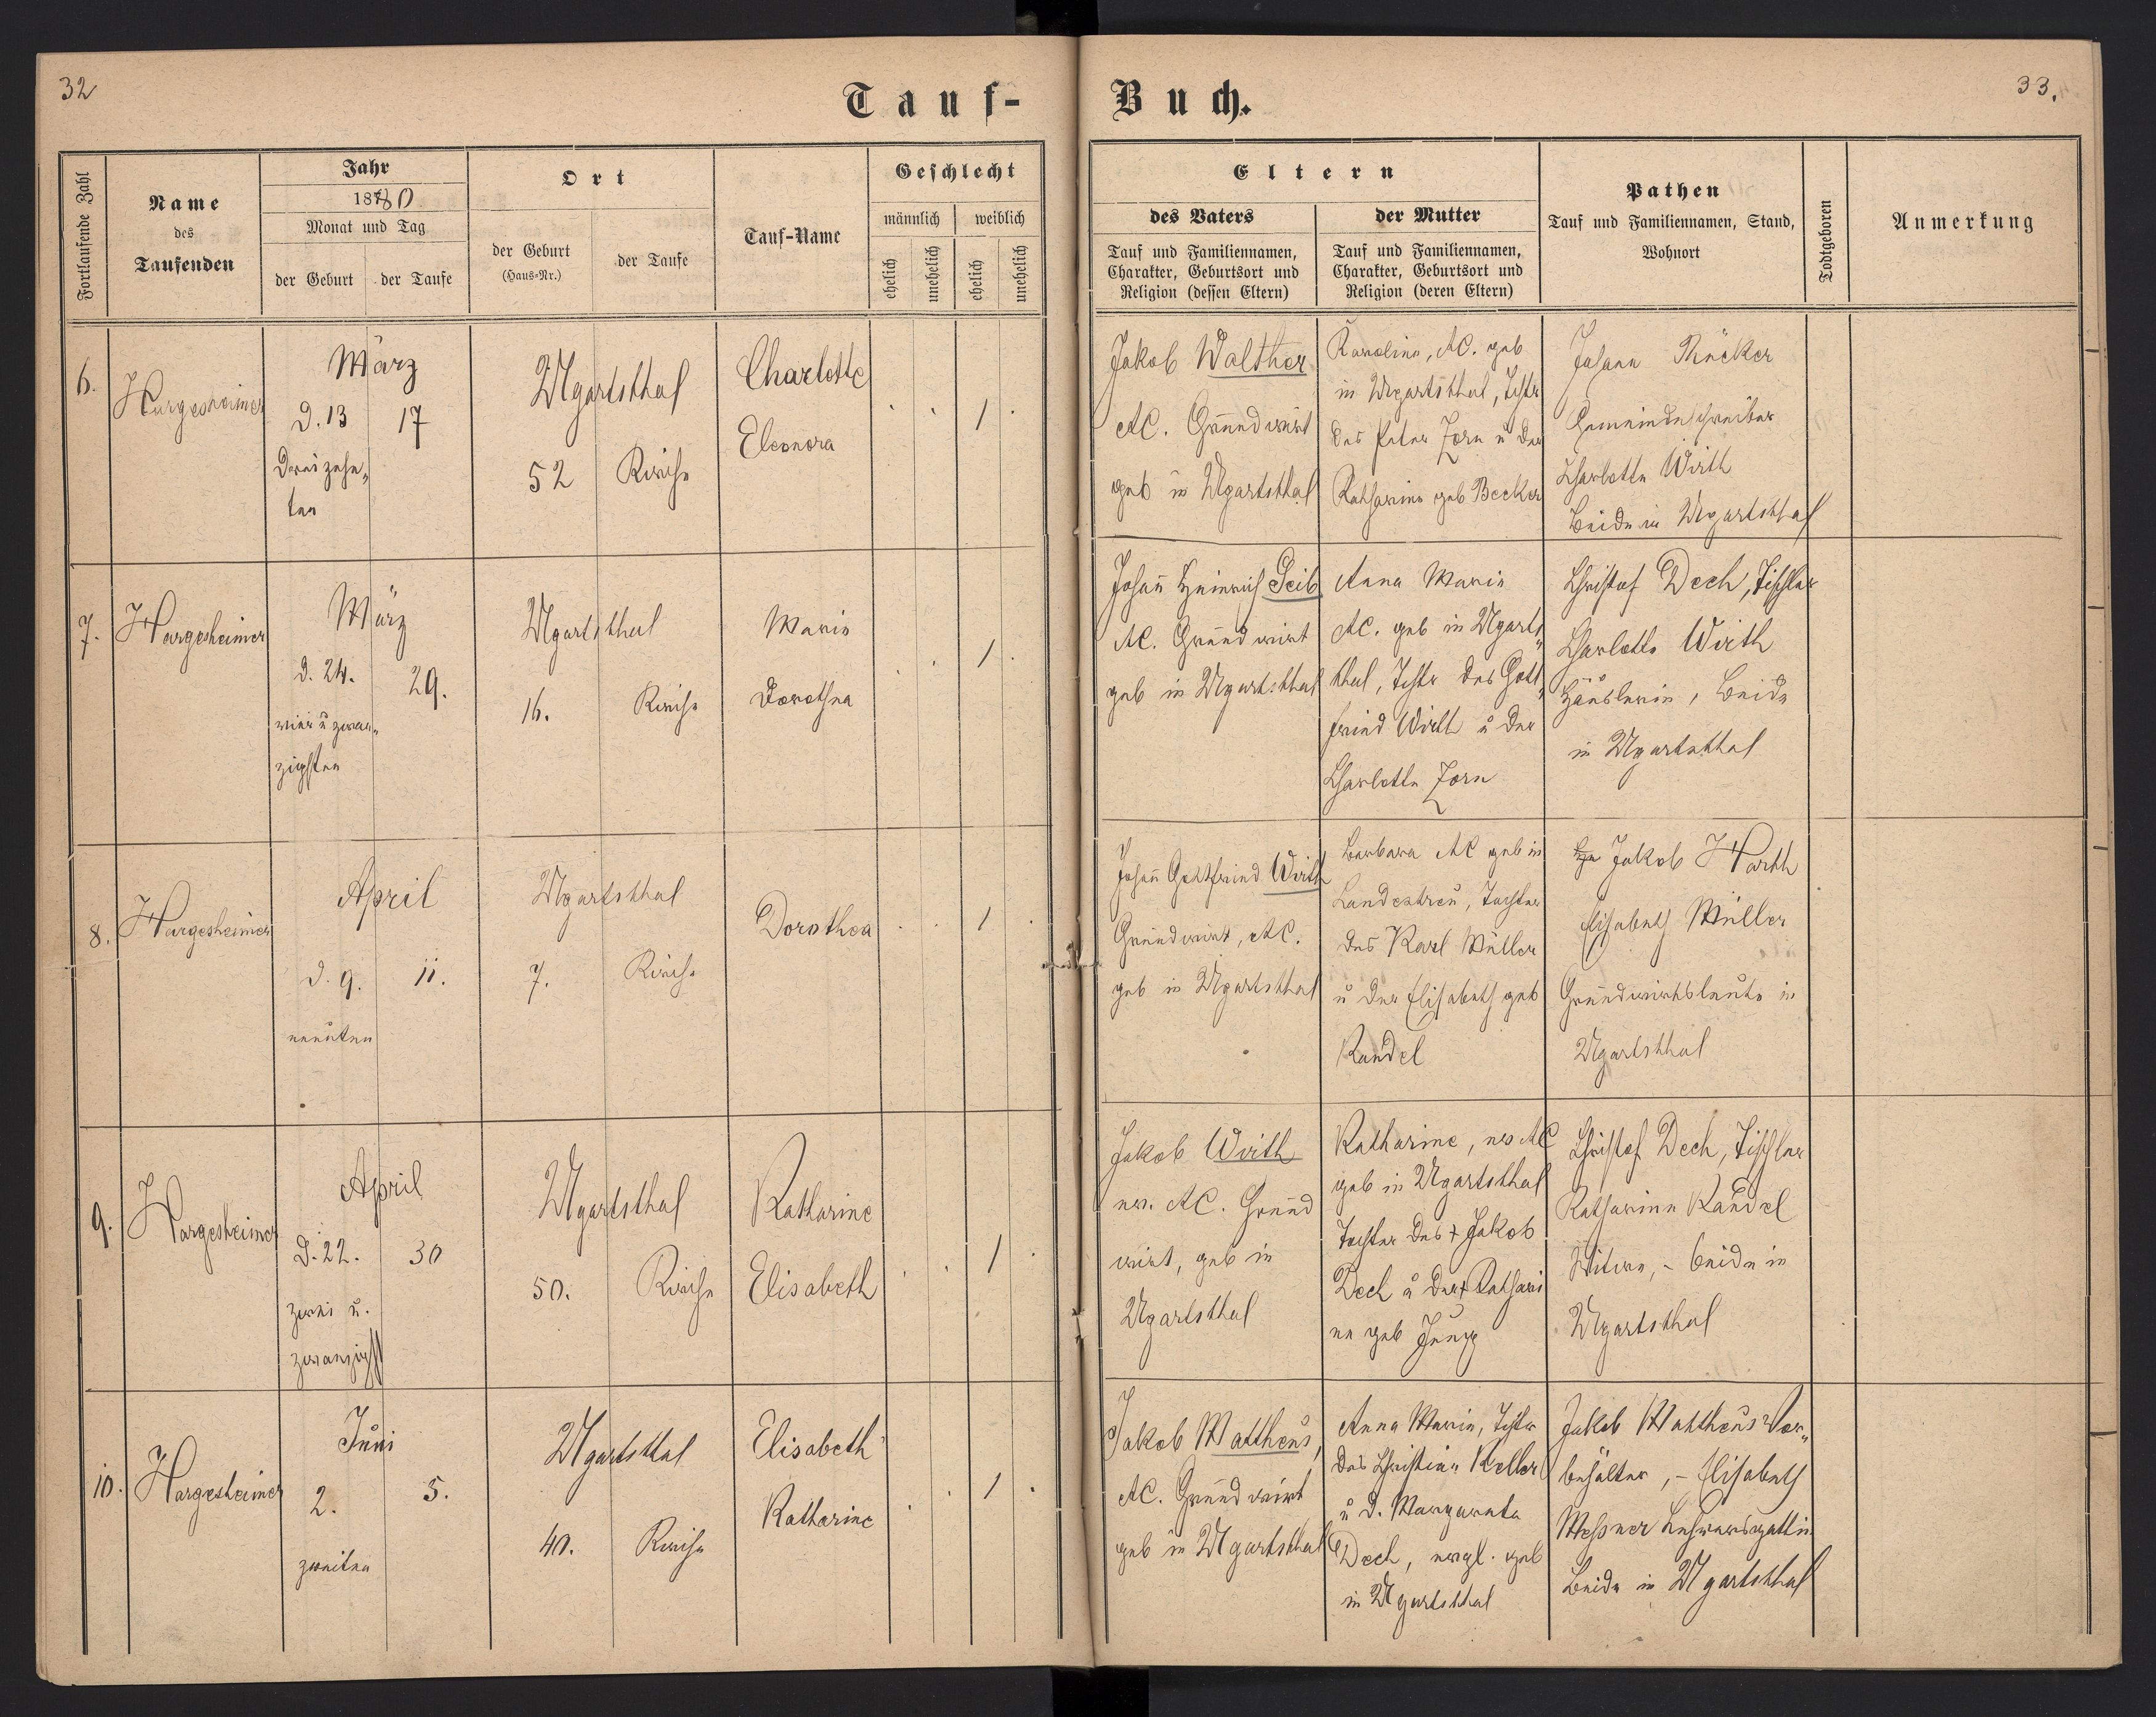 32
Tauf-
Buch.
33.
Fortlaufende Zahl
Name
des
Taufenden
Jahr
1880
Monat und Tag
der Geburt
der Taufe
Ort
der Geburt
(Haus-Nr.)
der Taufe
Tauf-Name
Geschlecht
männlich
weiblich
ehelich
unehelich
ehelich
unehelich
Eltern
des Vaters
Tauf und Familiennamen,
Charakter, Geburtsort und
Religion (dessen Eltern)
der Mutter
Tauf und Familiennamen,
Charakter, Geburtsort und
Religion (deren Eltern)
Pathen
Tauf und Familiennamen, Stand,
Wohnort
Todtgeboren
Anmerkung
6.
Hargesheimer
März
d. 13
17
Dreizehn„
ten
Ugartsthal
52
Kirche
Charlotte
Eleonora
1
Jakob Walther
AC. Grundwirt
geb in Ugartsthal
Karolina, AC. geb
in Ugartsthal, Tchtr
des Peter Zorn u der
Katharina geb Becker
Johann Rücker
Gemeindeschreiber
Charlotte Wirth
Beide in Ugartsthal
7.
Hargesheimer
März
d. 24.
29.
vier u zwan„
zigsten
Ugartsthal
16.
Kirche
Maria
Dorothea
1
Johann Heinrich Geib
AC. Grundwirt
geb in Ugartsthal
Anna Maria
AC. geb in Ugarts„
thal, Tchtr des Gott„
fried Wirth u der
Charlotte Zorn
Christof Dech, Tischler
Charlotte Wirth
Häuslerin, Beide
in Ugartsthal
8.
Hargesheimer
April
d. 9.
11.
neunten
Ugartsthal
7.
Kirche
Dorothea
1
Johann Gottfried Wirth
Grundwirt, AC.
geb in Ugartsthal
Barbara AC geb in
Landestreu, Tochter
des Karl Müller
u der Elisabeth geb
Kandel
Jakob Harth
Elisabeth Müller
Grundwirthsleute in
Ugartsthal
9.
Hargesheimer
April
d. 22.
30
zwei u.
zwanzigst
Ugartsthal
50.
Kirche
Katharine
Elisabeth
1
Jakob Wirth
ev. AC. Grund
wirt, geb in
Ugartsthal
Katharine, ev AC
geb in Ugartsthal
Tochter des + Jakob
Dech u der + Kathari
na geb Jung
Christof Dech, Tischler
Katharina Kandel
Witwe, - beide in
Ugartsthal
10.
Hargesheimer
Juni
2.
5.
zweiten
Ugartsthal
40.
Kirche
Elisabeth
Katharine
1
Jakob Mattheus,
AC. Grundwirt
geb in Ugartsthal
Anna Maria, Tchtr
des Christian Keller
u d. Margareta
Dech, evgl. geb
in Ugartsthal
Jakob Mattheus Vor„
behälter, - Elisabeth
Messner Lehrersgattin
Beide in Ugartsthal